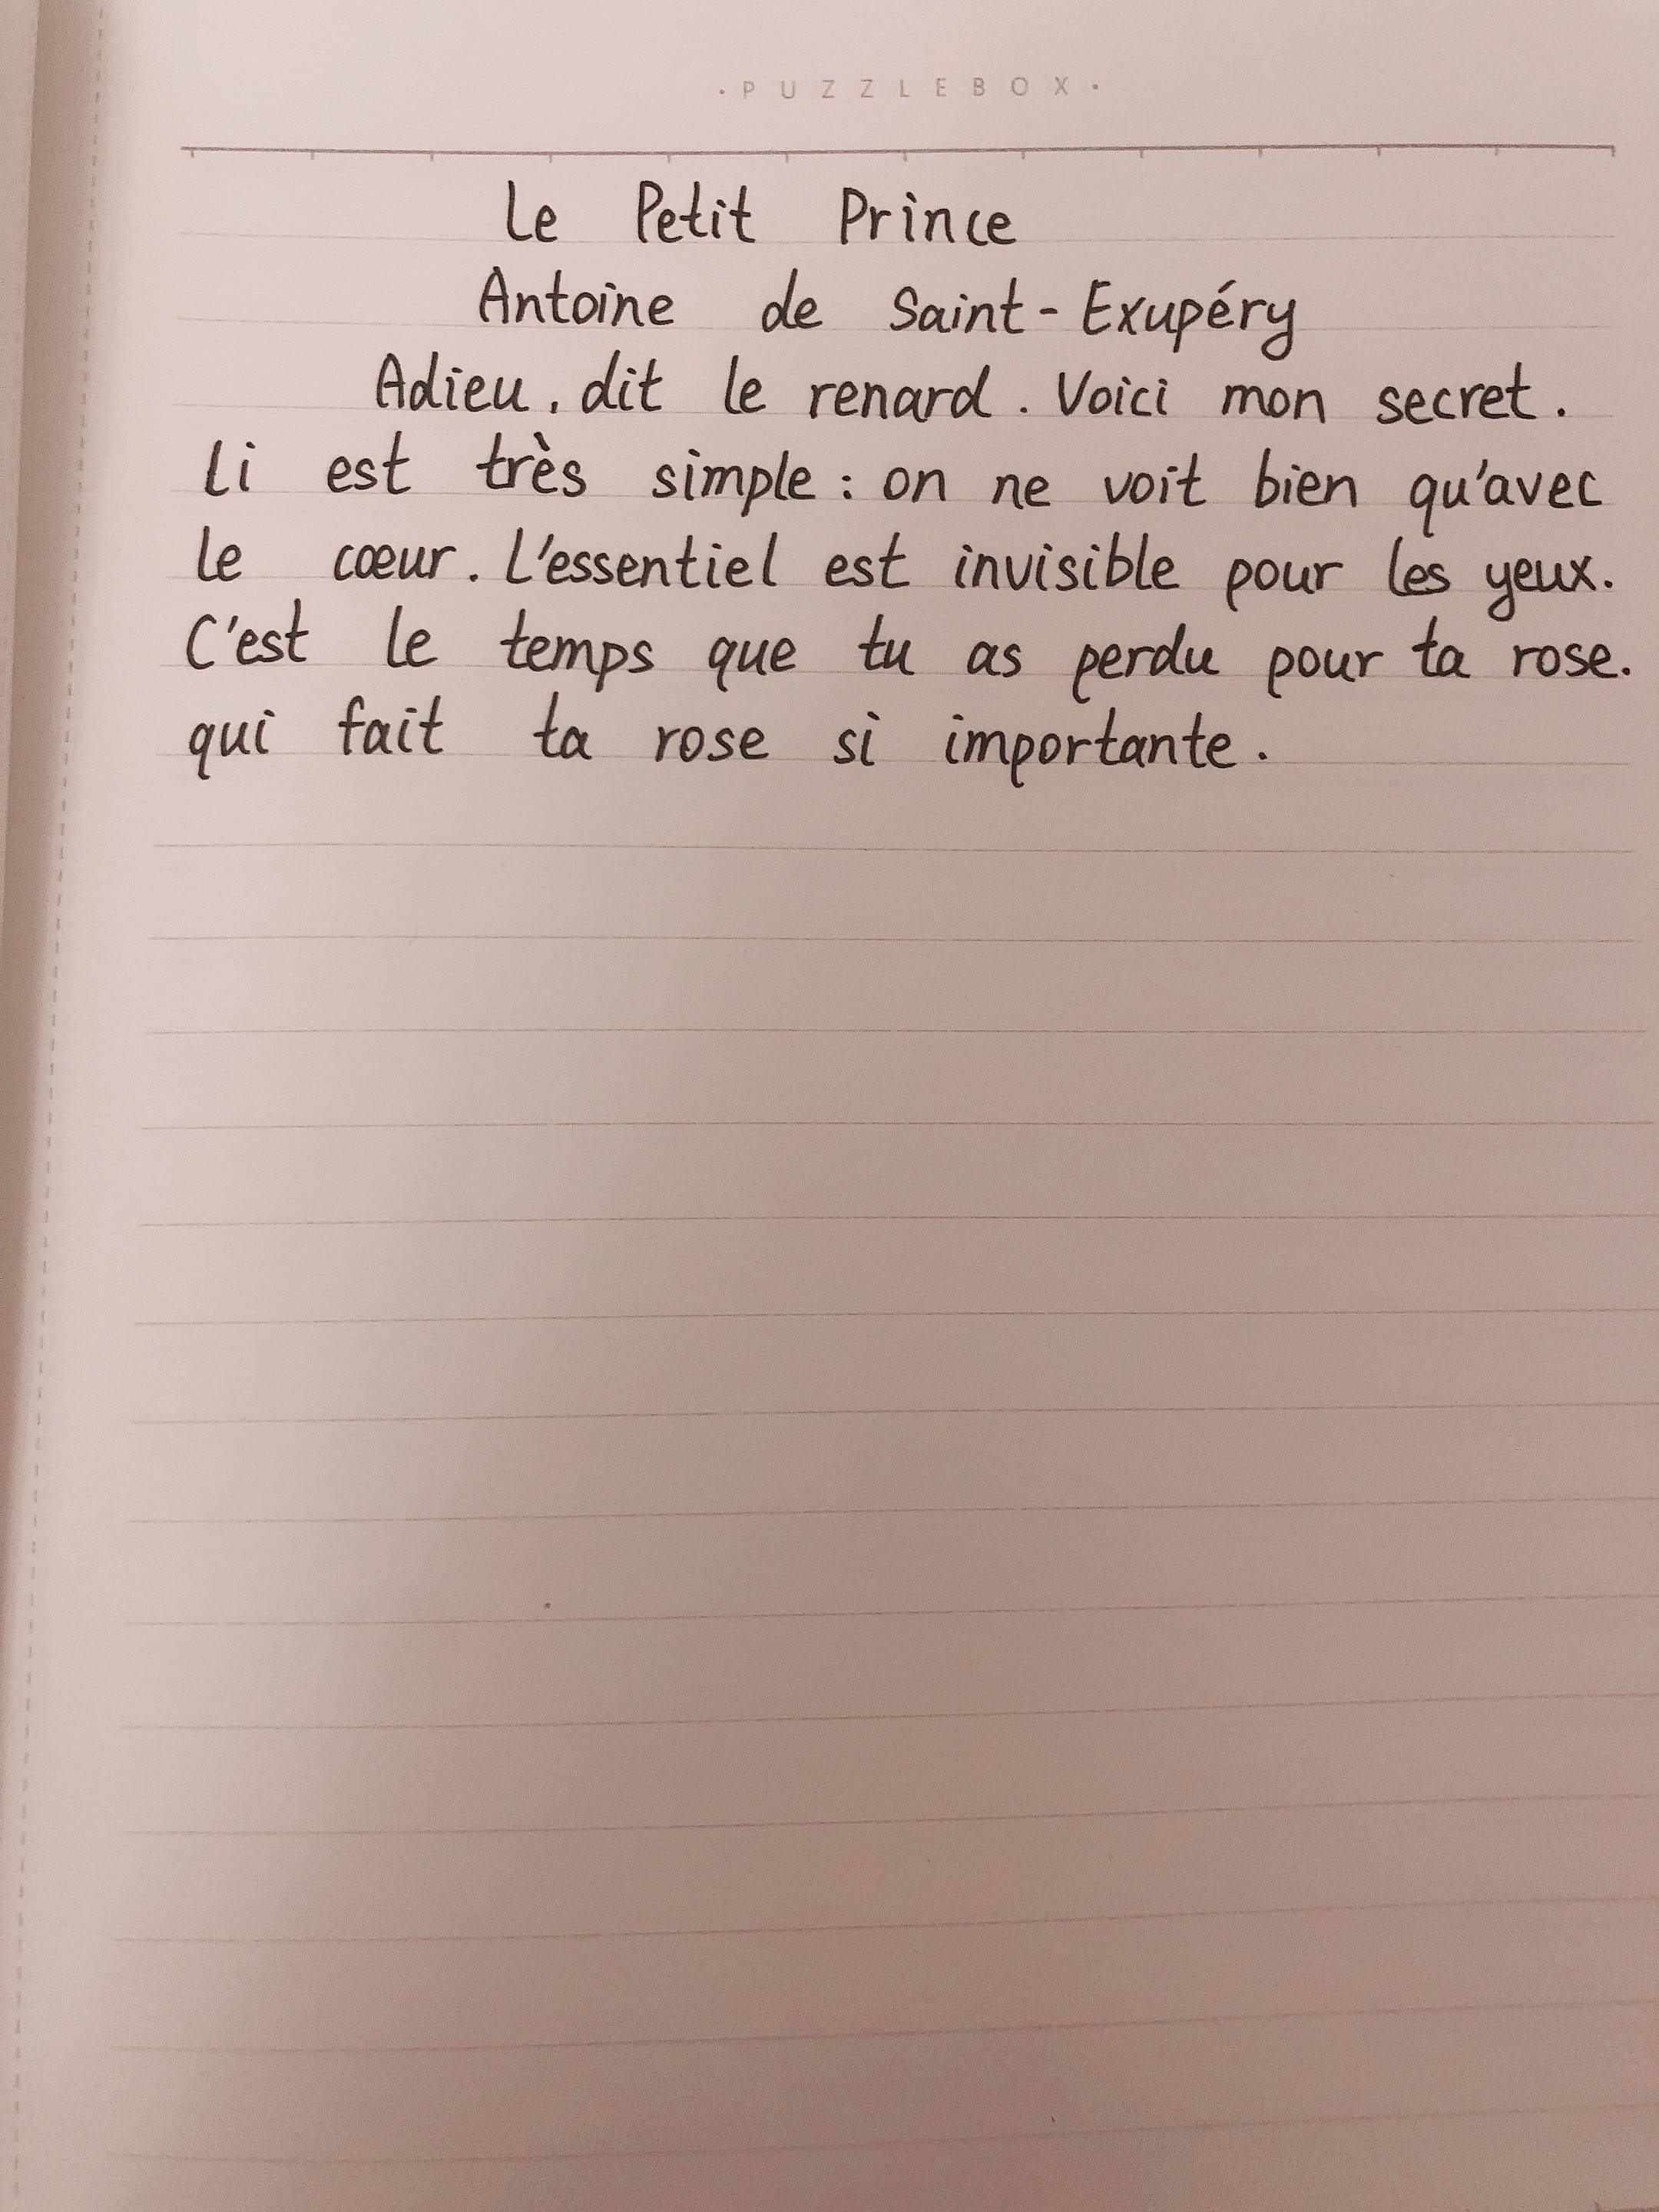 · P U Z Z L E B O X ·
Le Petit Prince
Antoine de Saint-Exupéry
Adieu, dit le renard. Voici mon secret.
Li est très simple : on ne voit bien qu'avec
le cœur. L'essentiel est invisible pour les yeux.
C'est le temps que tu as perdu pour ta rose.
qui fait ta rose si importante.